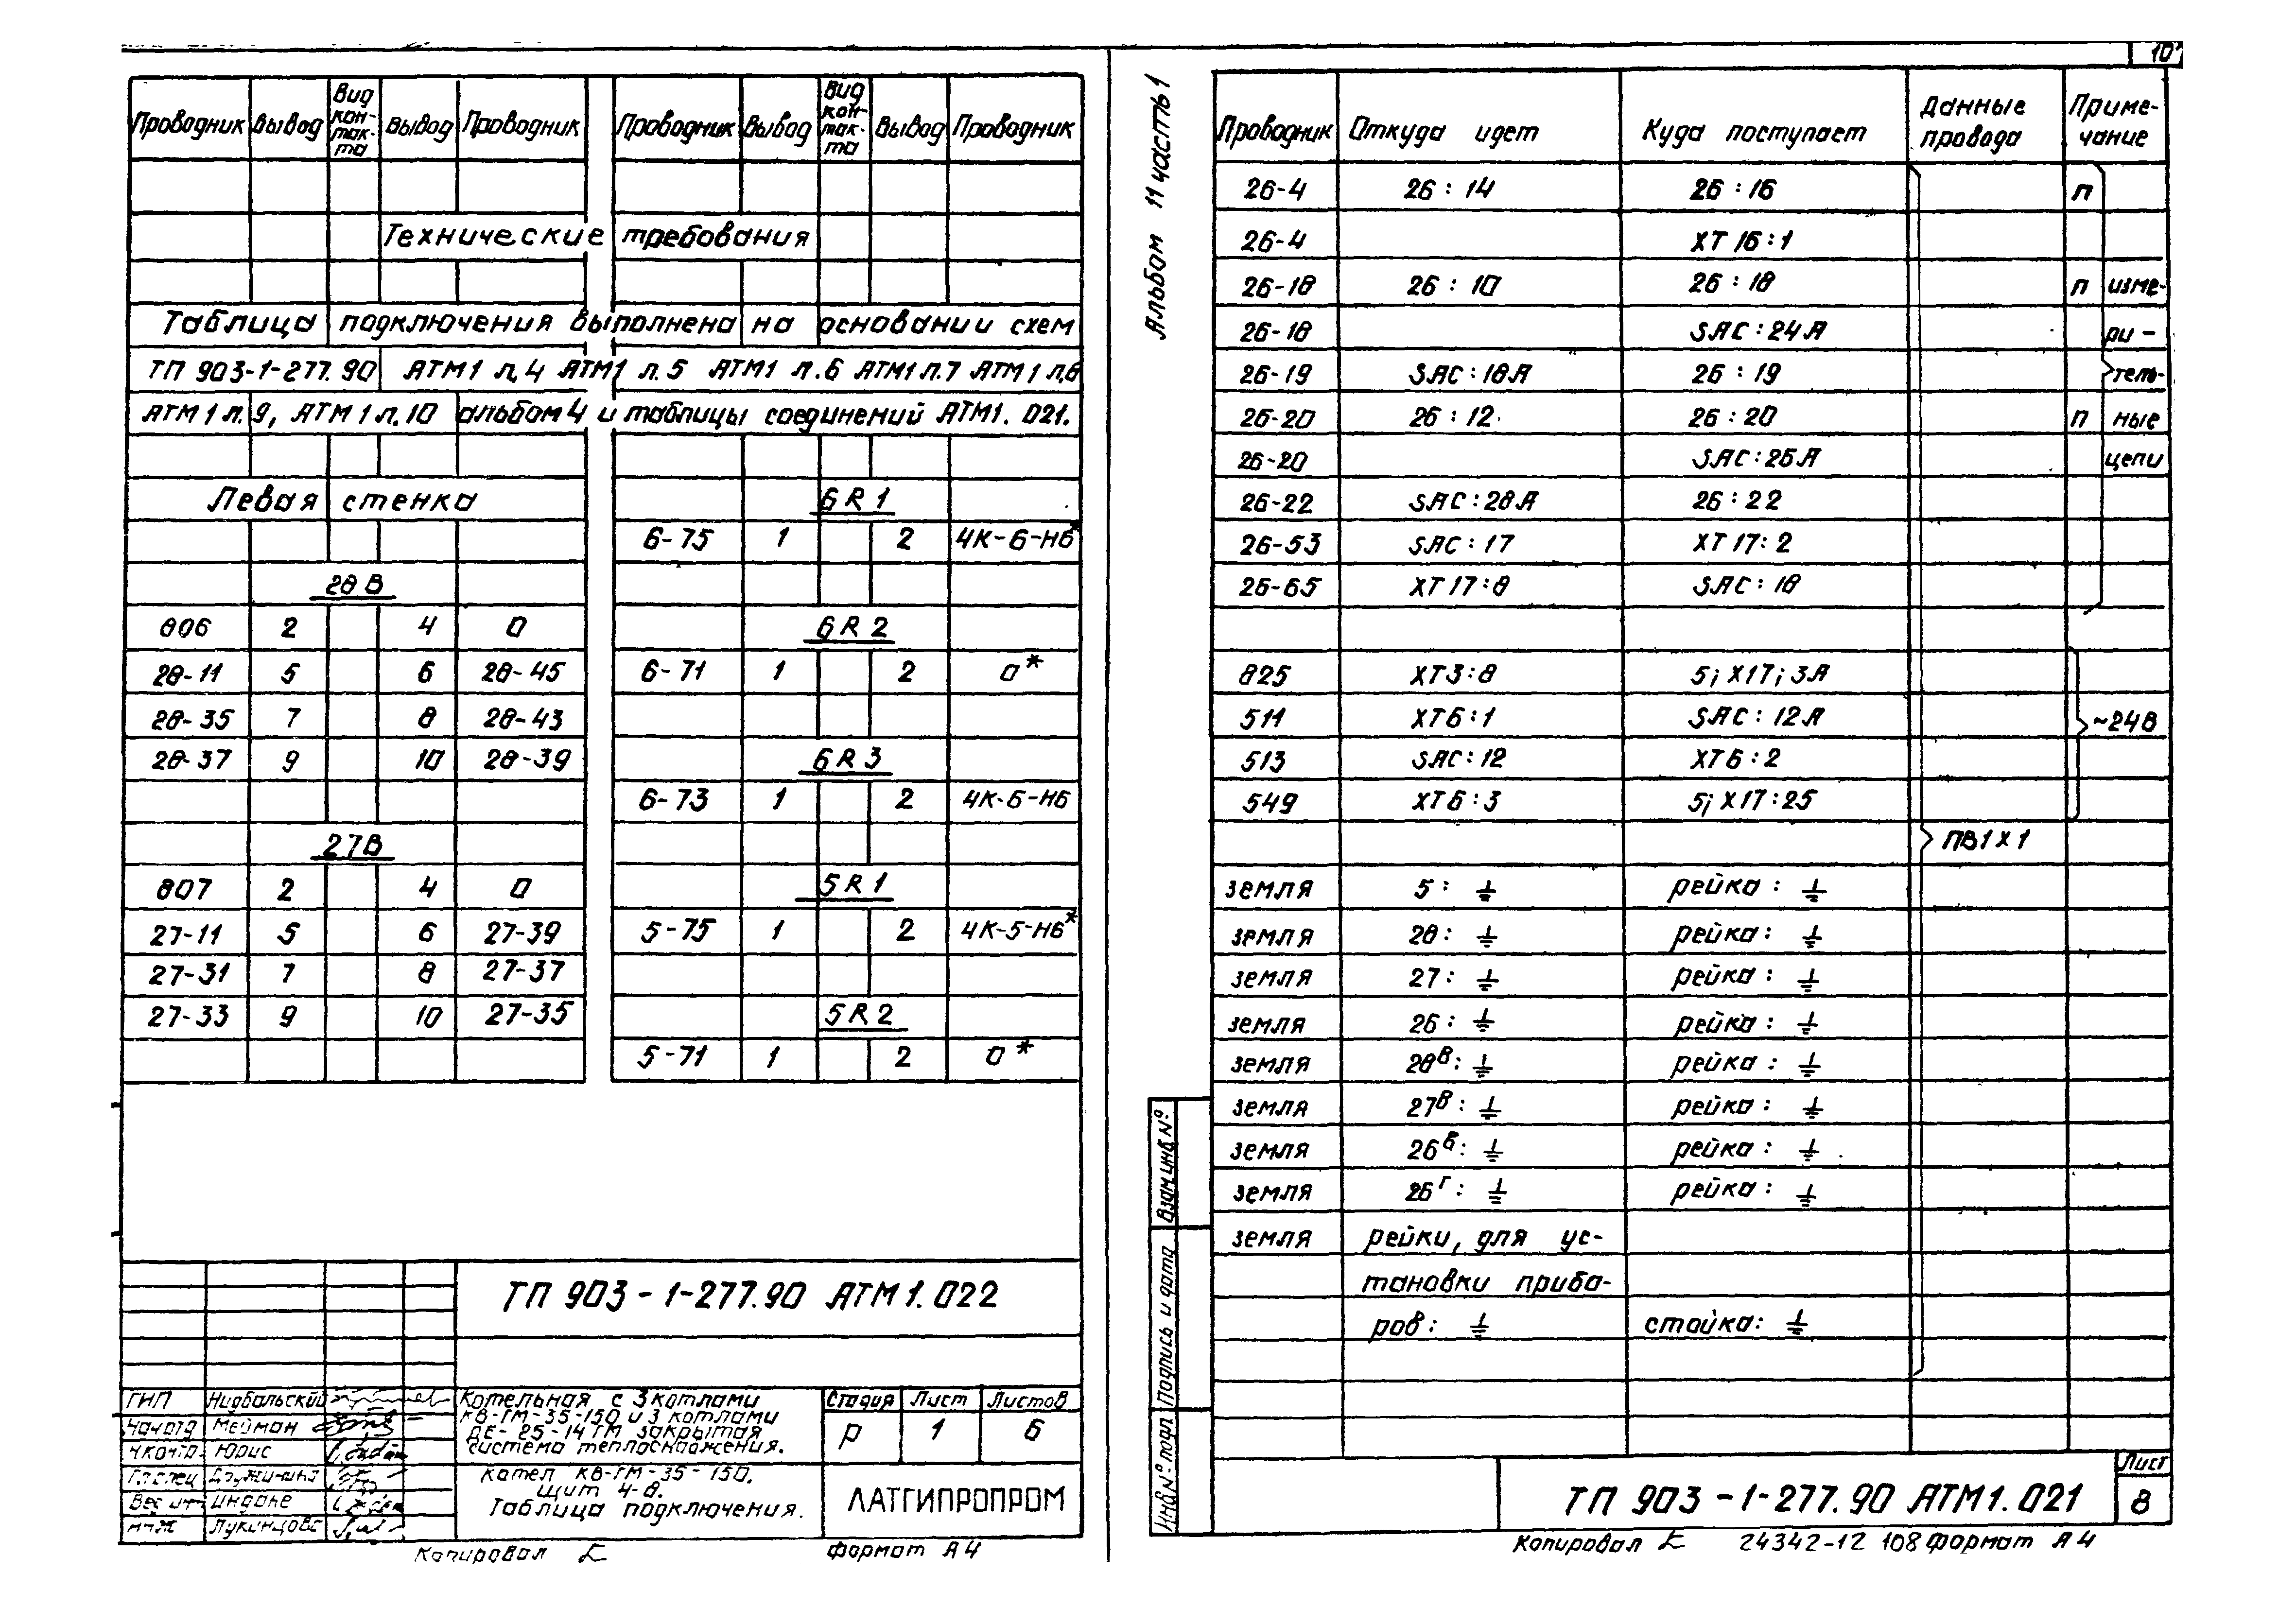 Проводник Вывод Вид кон-так-та Вывод Проводник Проводник Вывод Вид кон-так-та Вывод Проводник
Технические требования
Таблица подключения выполнена на основании схем
ТП 903-1-277.90 АТМ1 л.4 АТМ1 л.5 АТМ1 л.6 АТМ1 л.7 АТМ1 л.8
АТМ1 л.9, АТМ1 л.10 альбом 4 и таблицы соединений АТМ1.021.
Левая стенка
28В
806 2 4 0
28-11 5 6 28-45
28-35 7 8 28-43
28-37 9 10 28-39
27В
807 2 4 0
27-11 5 6 27-39
27-31 7 8 27-37
27-33 9 10 27-35
6R1
6-75 1 2 4К-6-Н6*
6R2
6-71 1 2 0*
6R3
6-73 1 2 4К-6-Н6
5R1
5-75 1 2 4К-5-Н6*
5R2
5-71 1 2 0*
ТП 903-1-277.90 АТМ1.022
ГИП Нидбальский
Мейман
Юрис
Индане
Котельная с 3 котлами
КВ-ГМ-35-150 и 3 котлами
ДЕ-25-14ГМ закрытая
система теплоснабжения.
Котел КВ-ГМ-35-150.
Щит 4-8.
Таблица подключения.
Стадия Лист Листов
Р 1 6
ЛАТГИПРОПРОМ
Копировал
Формат А4
10
Альбом 11 часть 1
Проводник Откуда идет Куда поступает Данные провода Приме-чание
26-4 26:14 26:16 п
26-4 XT16:1
26-18 26:10 26:18 п изме-
26-18 SAC:24А ри-
26-19 SAC:18А 26:19 тель-
26-20 26:12 26:20 п ные
26-20 SAC:26А цепи
26-22 SAC:28А 26:22
26-53 SAC:17 XT17:2
26-65 XT17:8 SAC:18
825 XT3:8 5; X17; 3А
511 XT6:1 SAC:12А
~24В
513 SAC:12 XT6:2
549 XT6:3 5; X17:25
ПВ1Х1
земля 5: ⏚ рейка: ⏚
земля 28: ⏚ рейка: ⏚
земля 27: ⏚ рейка: ⏚
земля 26: ⏚ рейка: ⏚
земля 28В: ⏚ рейка: ⏚
земля 27В: ⏚ рейка: ⏚
земля 26В: ⏚ рейка: ⏚
земля 26Г: ⏚ рейка: ⏚
земля рейки, для ус-
тановки прибо-
ров: ⏚ стойка: ⏚
Взам.инв№
Подпись и дата
Инв№подл
ТП 903-1-277.90 АТМ1.021
Лист
8
Копировал 24342-12 108 Формат А4